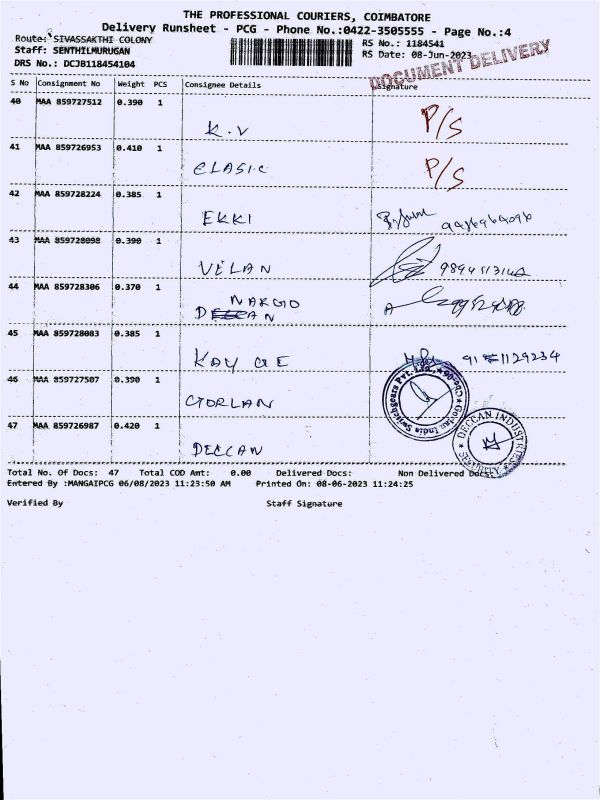 THE PROFESSIONAL COURIERS, COIMBATORE
Delivery Runsheet - PCG - Phone No.:0422-3505555 - Page No.:4
Route: SIVASSAKTHI COLONY RS No.: 1184541
Staff: SENTHILMURUGAN RS Date: 08-Jun-2023
DRS No.: DCJB118454104 DOCUMENT DELIVERY
S No Consignment No Weight PCS Consignee Details Signature
40 MAA 859727512 0.390 1
K.V P/S
41 MAA 859726953 0.410 1
CLASIC P/S
42 MAA 859728224 0.385 1
EKKI
43 MAA 859728098 0.390 1
VELAN
44 MAA 859728306 0.370 1
45 MAA 859728083 0.385 1
KAY GE
46 MAA 859727507 0.390 1
GORLAN
47 MAA 859726987 0.420 1
DECCAN
India Switchgears Pvt. Ltd.
DECCAN INDUSTRIES
SECURITY
Total No. Of Docs: 47 Total COD Amt: 0.00 Delivered Docs: Non Delivered Docs:
Entered By :MANGAIPCG 06/08/2023 11:23:50 AM Printed On: 08-06-2023 11:24:25
Verified By Staff Signature